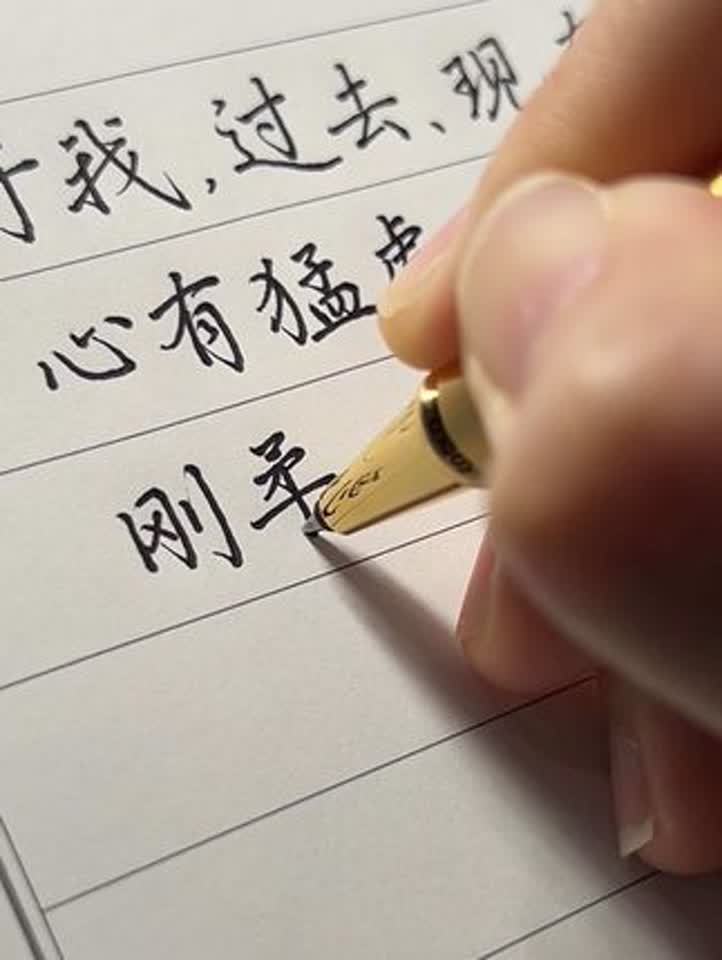 于我,过去、现
心有猛虎
刚柔